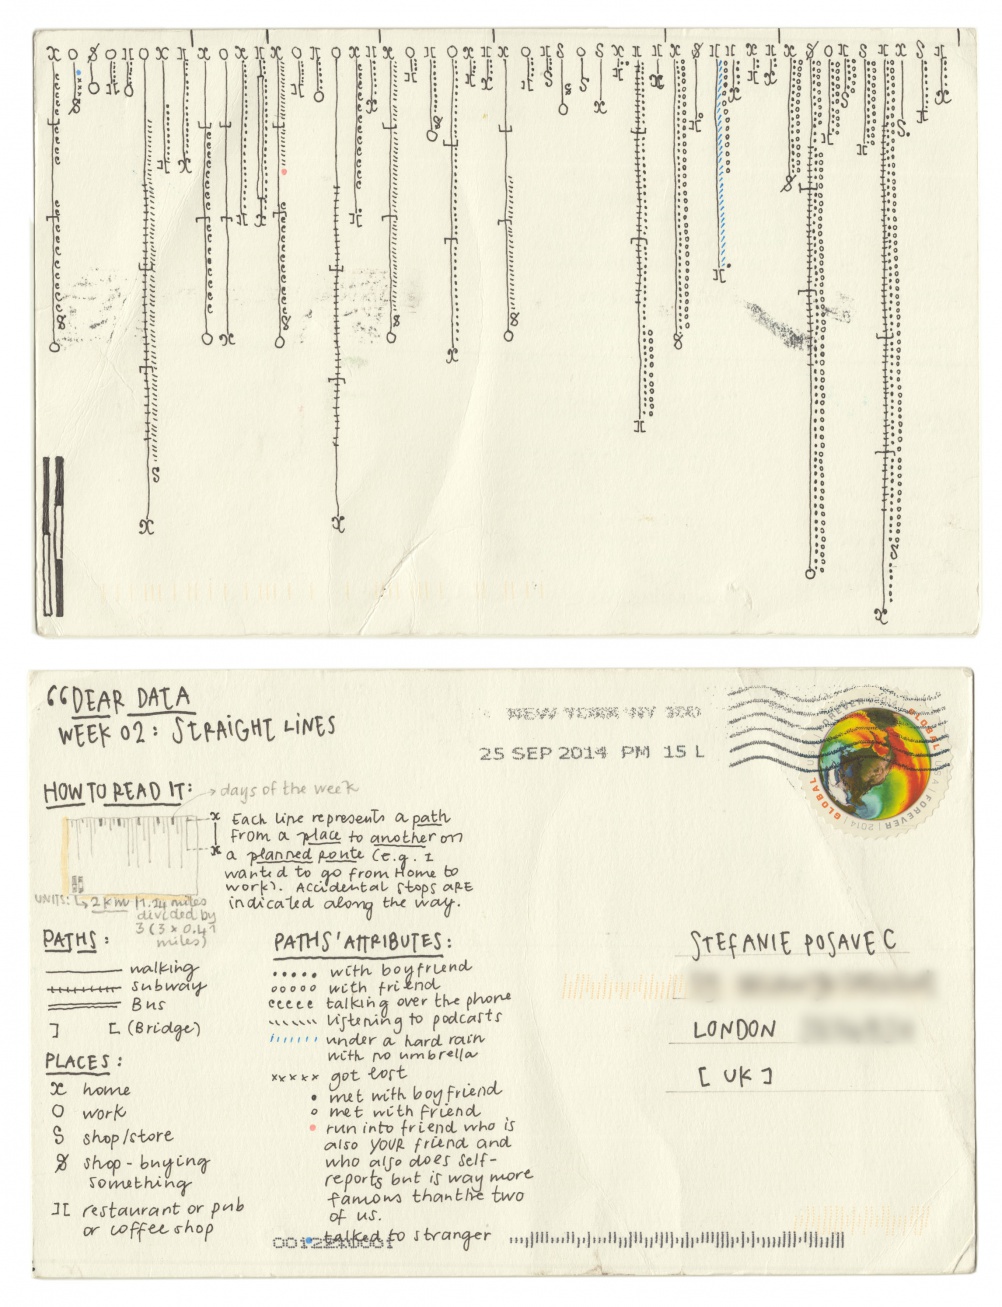 "DEAR DATA
WEEK 02: STRAIGHT LINES
NEW YORK NY 100
25 SEP 2014 PM 15 L
GLOBAL
FOREVER
2014
GLOBAL
HOW TO READ IT:
days of the week
x
x
Each line represents a path
from a place to another on
a planned route (e.g. I
wanted to go from Home to
work). Accidental stops ARE
indicated along the way.
UNITS: 2 km / 1.24 miles
divided by
3 (3 x 0.41
miles)
PATHS:
walking
subway
Bus
] [ (Bridge)
PLACES:
x home
O work
S shop/store
shop-buying
something
][ restaurant or pub
or coffee shop
PATHS' ATTRIBUTES:
with boyfriend
with friend
talking over the phone
listening to podcasts
under a hard rain
with no umbrella
xxxxx got lost
met with boyfriend
met with friend
run into friend who is
also YOUR friend and
who also does self-
reports but is way more
famous than the two
of us.
talked to stranger
STEFANIE POSAVEC
LONDON
[UK]